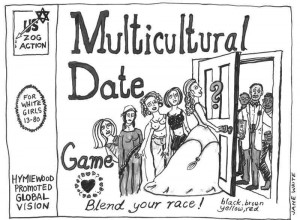 US
ZOG
ACTION
Multicultural
Date
Game
FOR
WHITE
GIRLS
13-80
?
HYMIEWOOD
PROMOTED
GLOBAL
VISION
Blend your race!
black, brown
yellow, red
GRACE WHITE